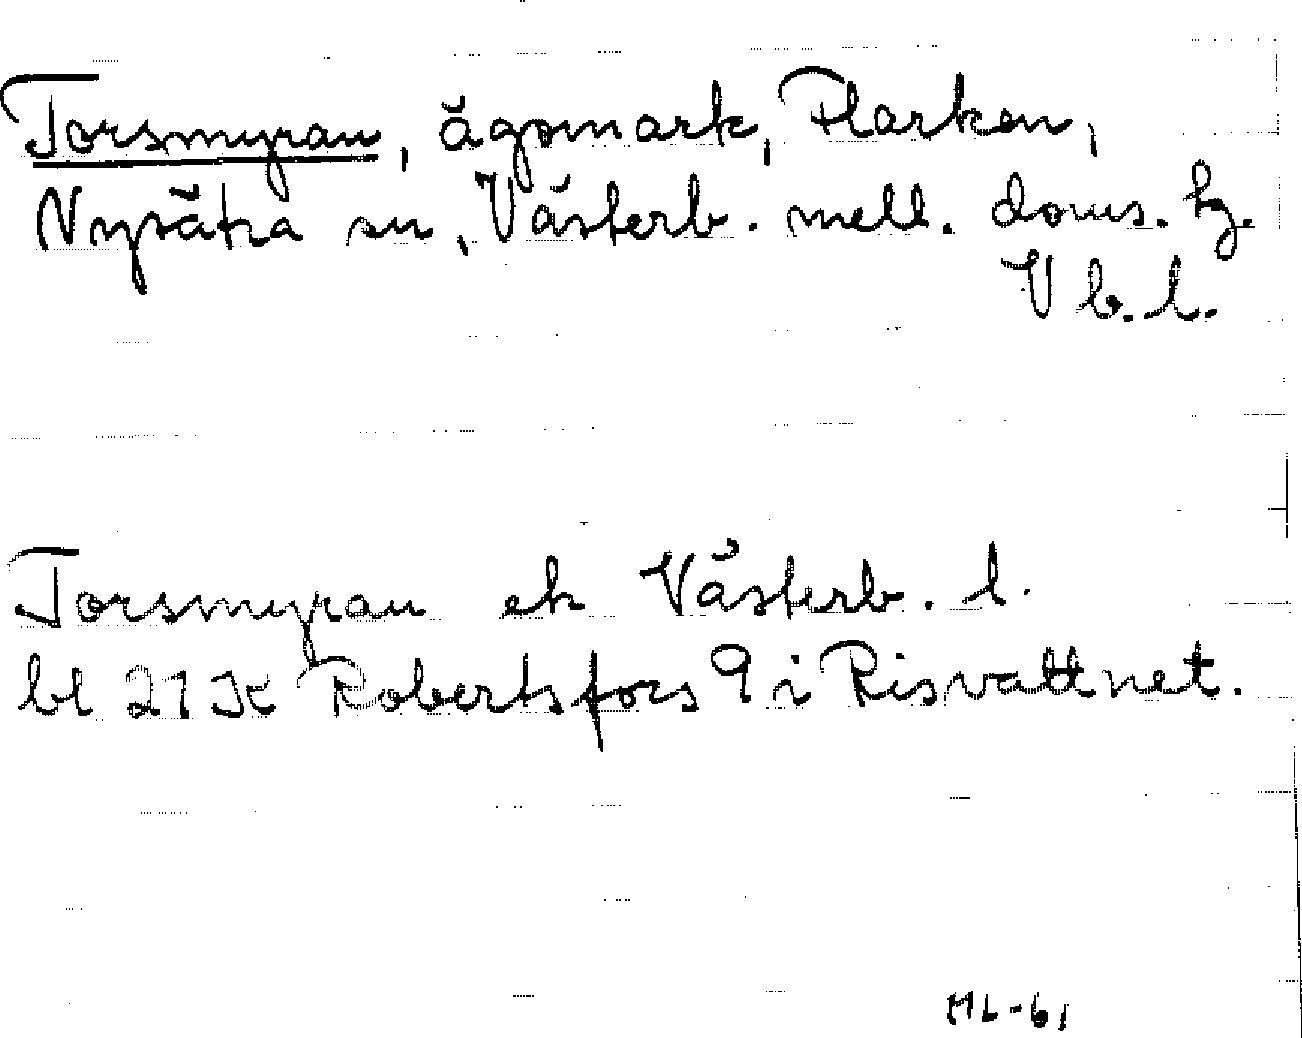 Torsmyran, ägomark, Flarken,
Nysätra sn, Västerb. mell. doms. hg.
Vb. l.
Torsmyran ek Västerb. l.
bl 21 K Robertsfors 9 i Risvattnet.
HL-61